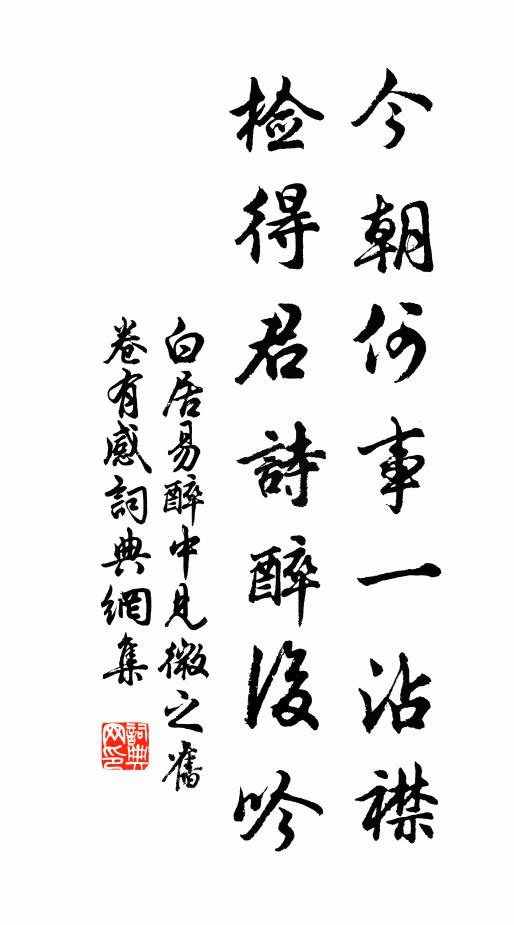 今朝何事一沾襟
檢得君詩醉後吟
白居易醉中見微之舊
卷有感詞典網集
詞典
网印